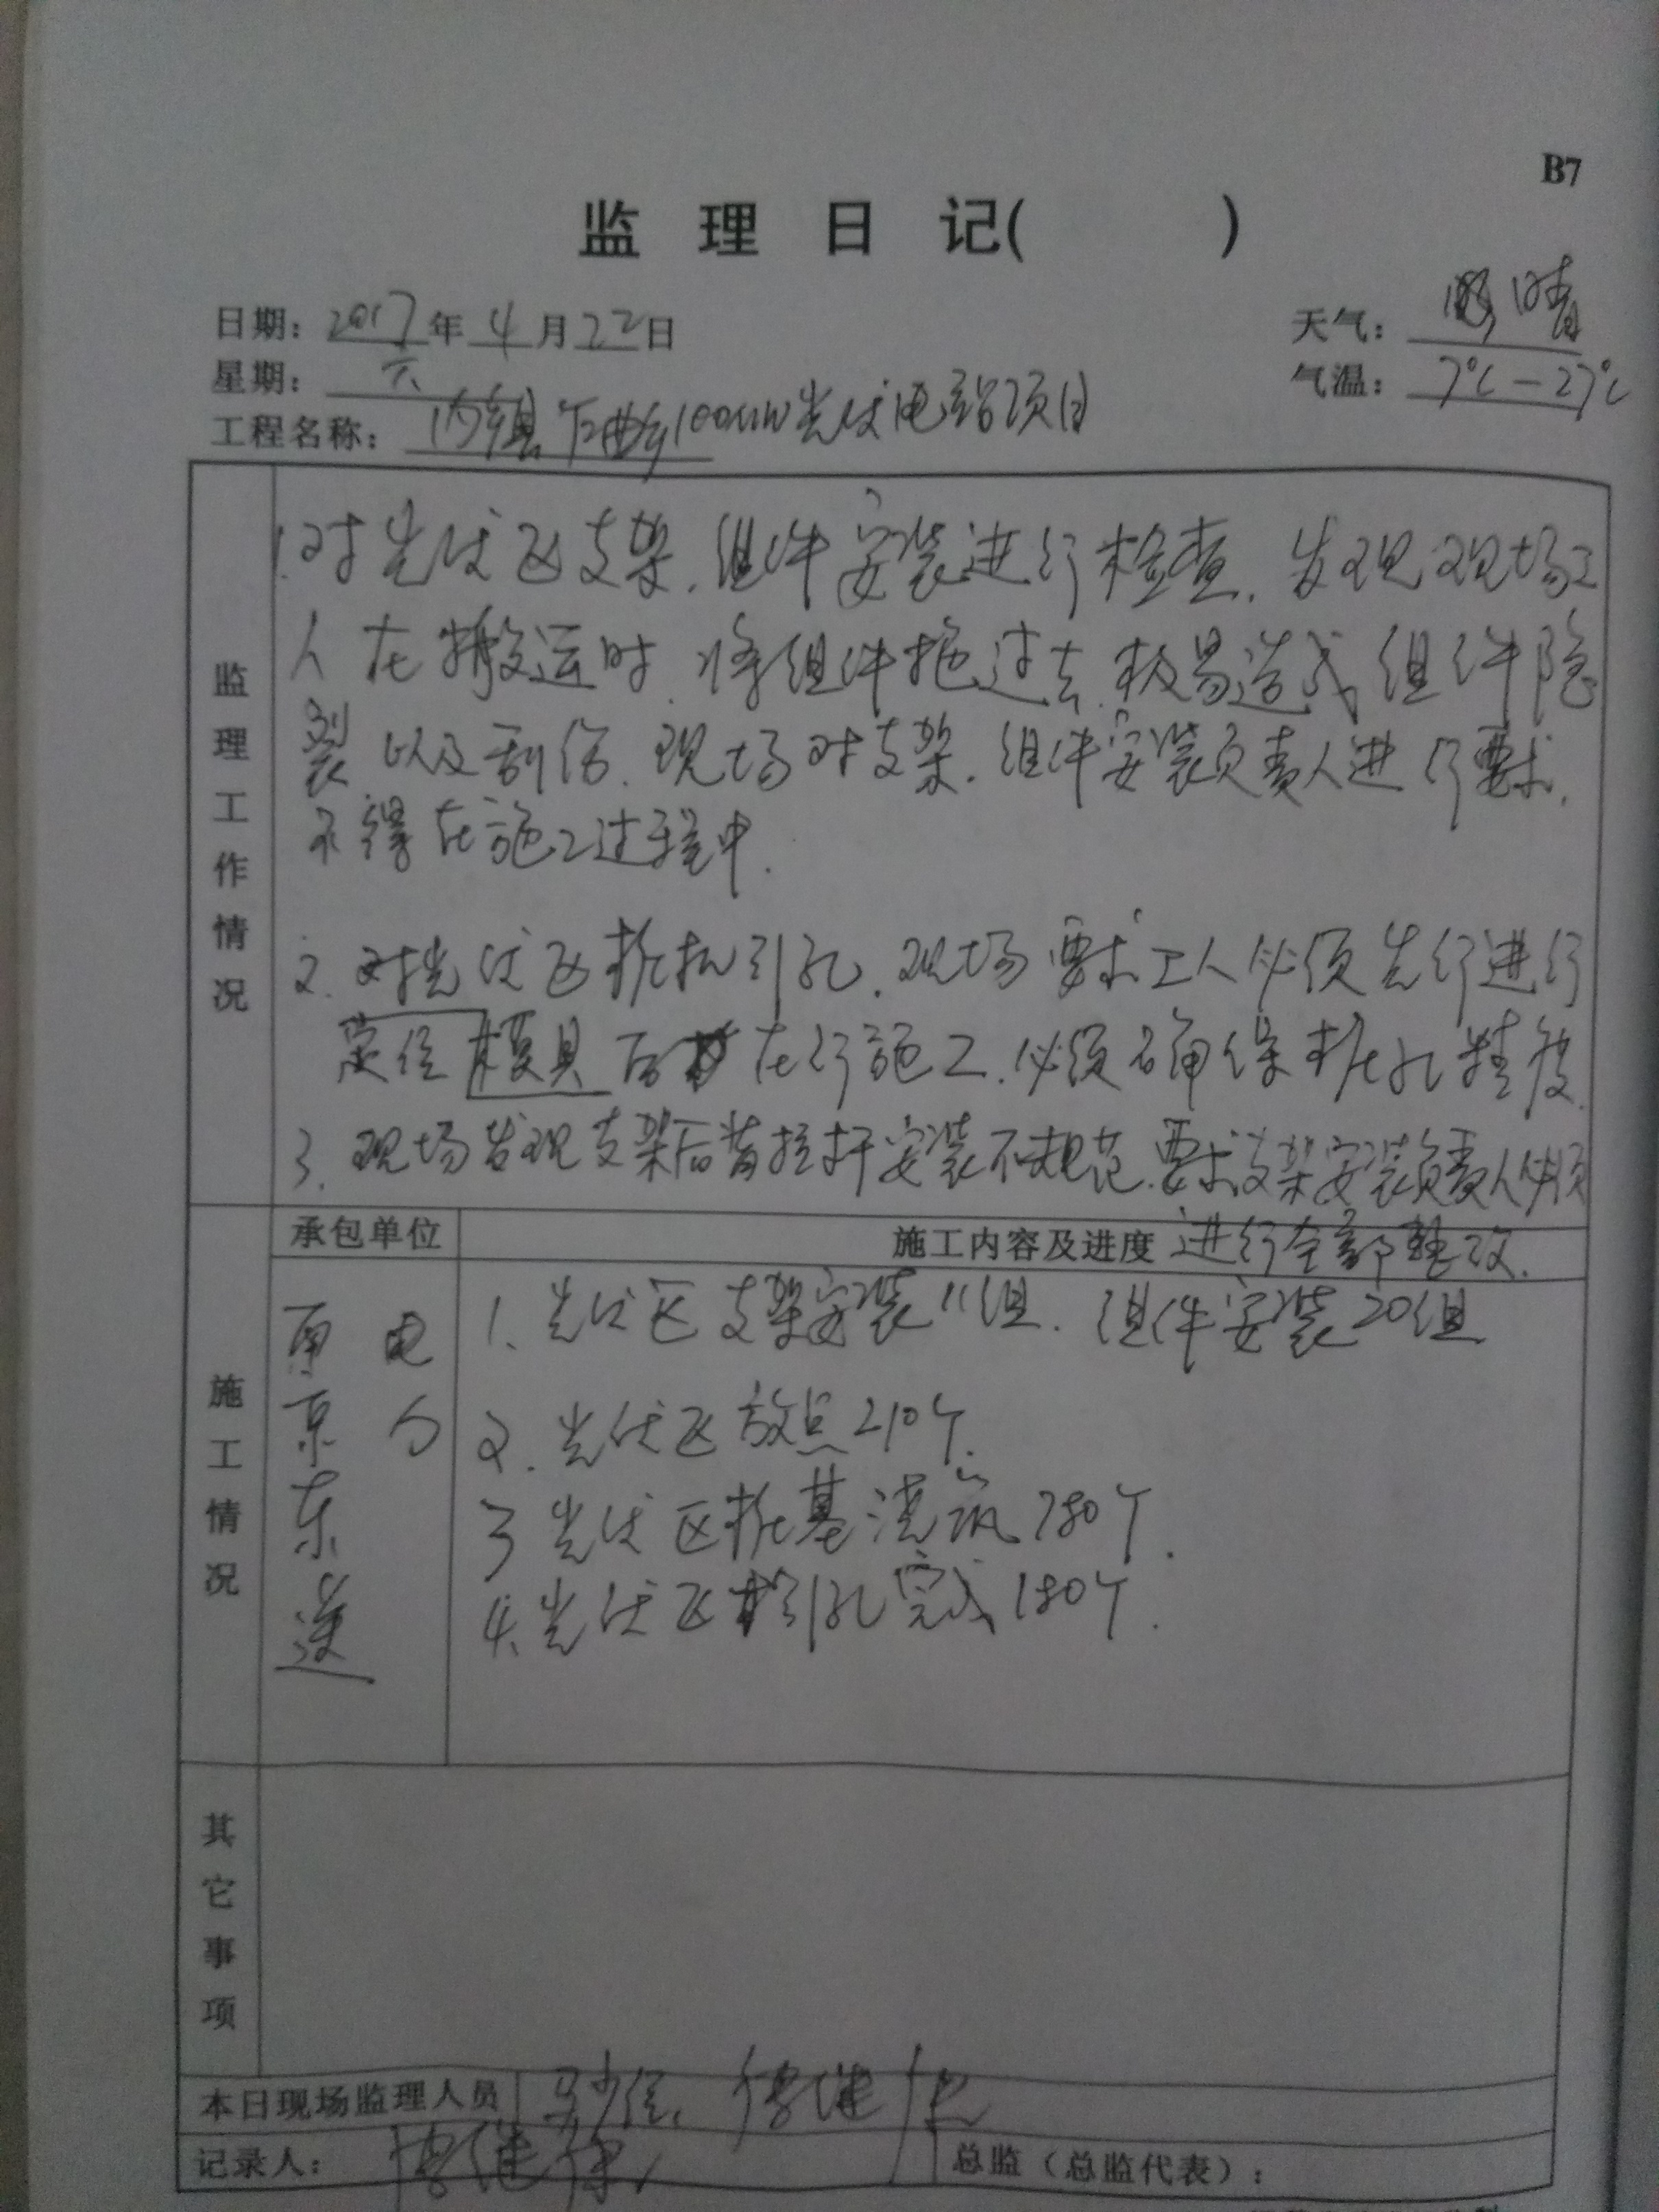 B7
监理日记( )
日期：2017年4月22日
天气：晴
星期：六
气温：7℃-27℃
工程名称：内乡县下曲乡100MW光伏电站项目
监理工作情况
1.对光伏区支架.组件安装进行检查.发现现场工
人在搬运时.将组件拖过去.极易造成组件隐
裂以及刮伤.现场对支架.组件安装负责人进行要求.
不得在施工过程中.
2.对光伏区桩机引孔.现场要求工人必须先行进行
定位模具后在行施工.必须确保桩孔精度.
3.现场发现支架后背拉杆安装不规范.要求支架安装负责人必须
进行全部整改.
承包单位
施工内容及进度
施工情况
南京东送
电力
1、光伏区支架安装11组.组件安装20组
2.光伏区放点210个.
3光伏区桩基浇筑780个.
4.光伏区桩引孔完成180个.
其它事项
本日现场监理人员
记录人：
总监（总监代表）：